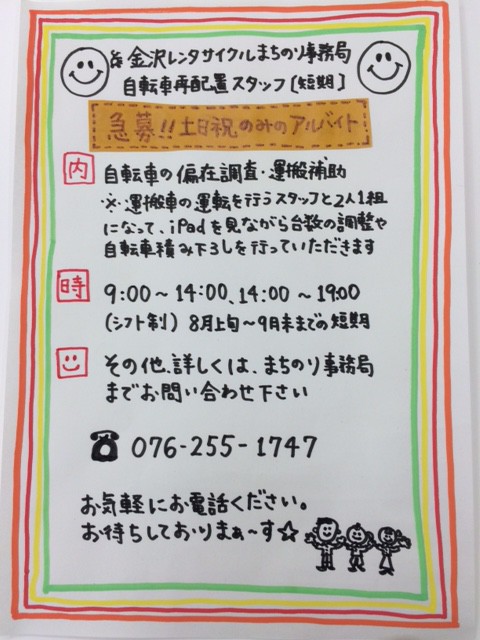 金沢レンタサイクルまちのり事務局
自転車再配置スタッフ〔短期〕
急募!!土日祝のみのアルバイト
内 自転車の偏在調査・運搬補助
・※・運搬車の運転を行うスタッフと2人1組
になって、iPadを見ながら台数の調整や
自転車積み下ろしを行っていただきます
時 9:00～14:00、14:00～19:00
(シフト制) 8月上旬～9月末までの短期
その他、詳しくは、まちのり事務局
までお問い合わせ下さい
☎ 076-255-1747
お気軽にお電話ください。
お待ちしておりまぁ～す☆